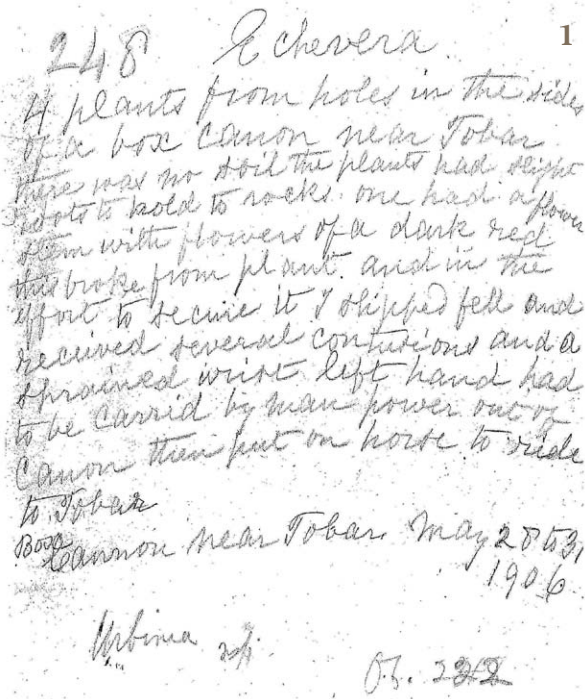 1
248 Echevera
4 plants from holes in the sides
of a box Canon near Tobar
there was no soil the plants had slight
roots to hold to rocks. one had a flower
stem with flowers of a dark red
this broke from plant. and in the
effort to secure it I slipped fell and
received several contusions and a
sprained wrist left hand had
to be carrid by man power out of
Canon then put on horse to ride
to Tobar
Box
Cannon near Tobar. May 28 to 31
1906.
Urbinia